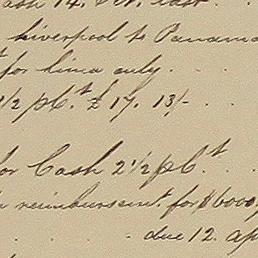 Cash 14.
Liverpool to Panama
for Lima only. . .
1/2 p Ct £ 17. 13/- . . .
for Cash 2 1/2 p Ct . .
reimbursemt for $6000,
. . . . due 12. ap